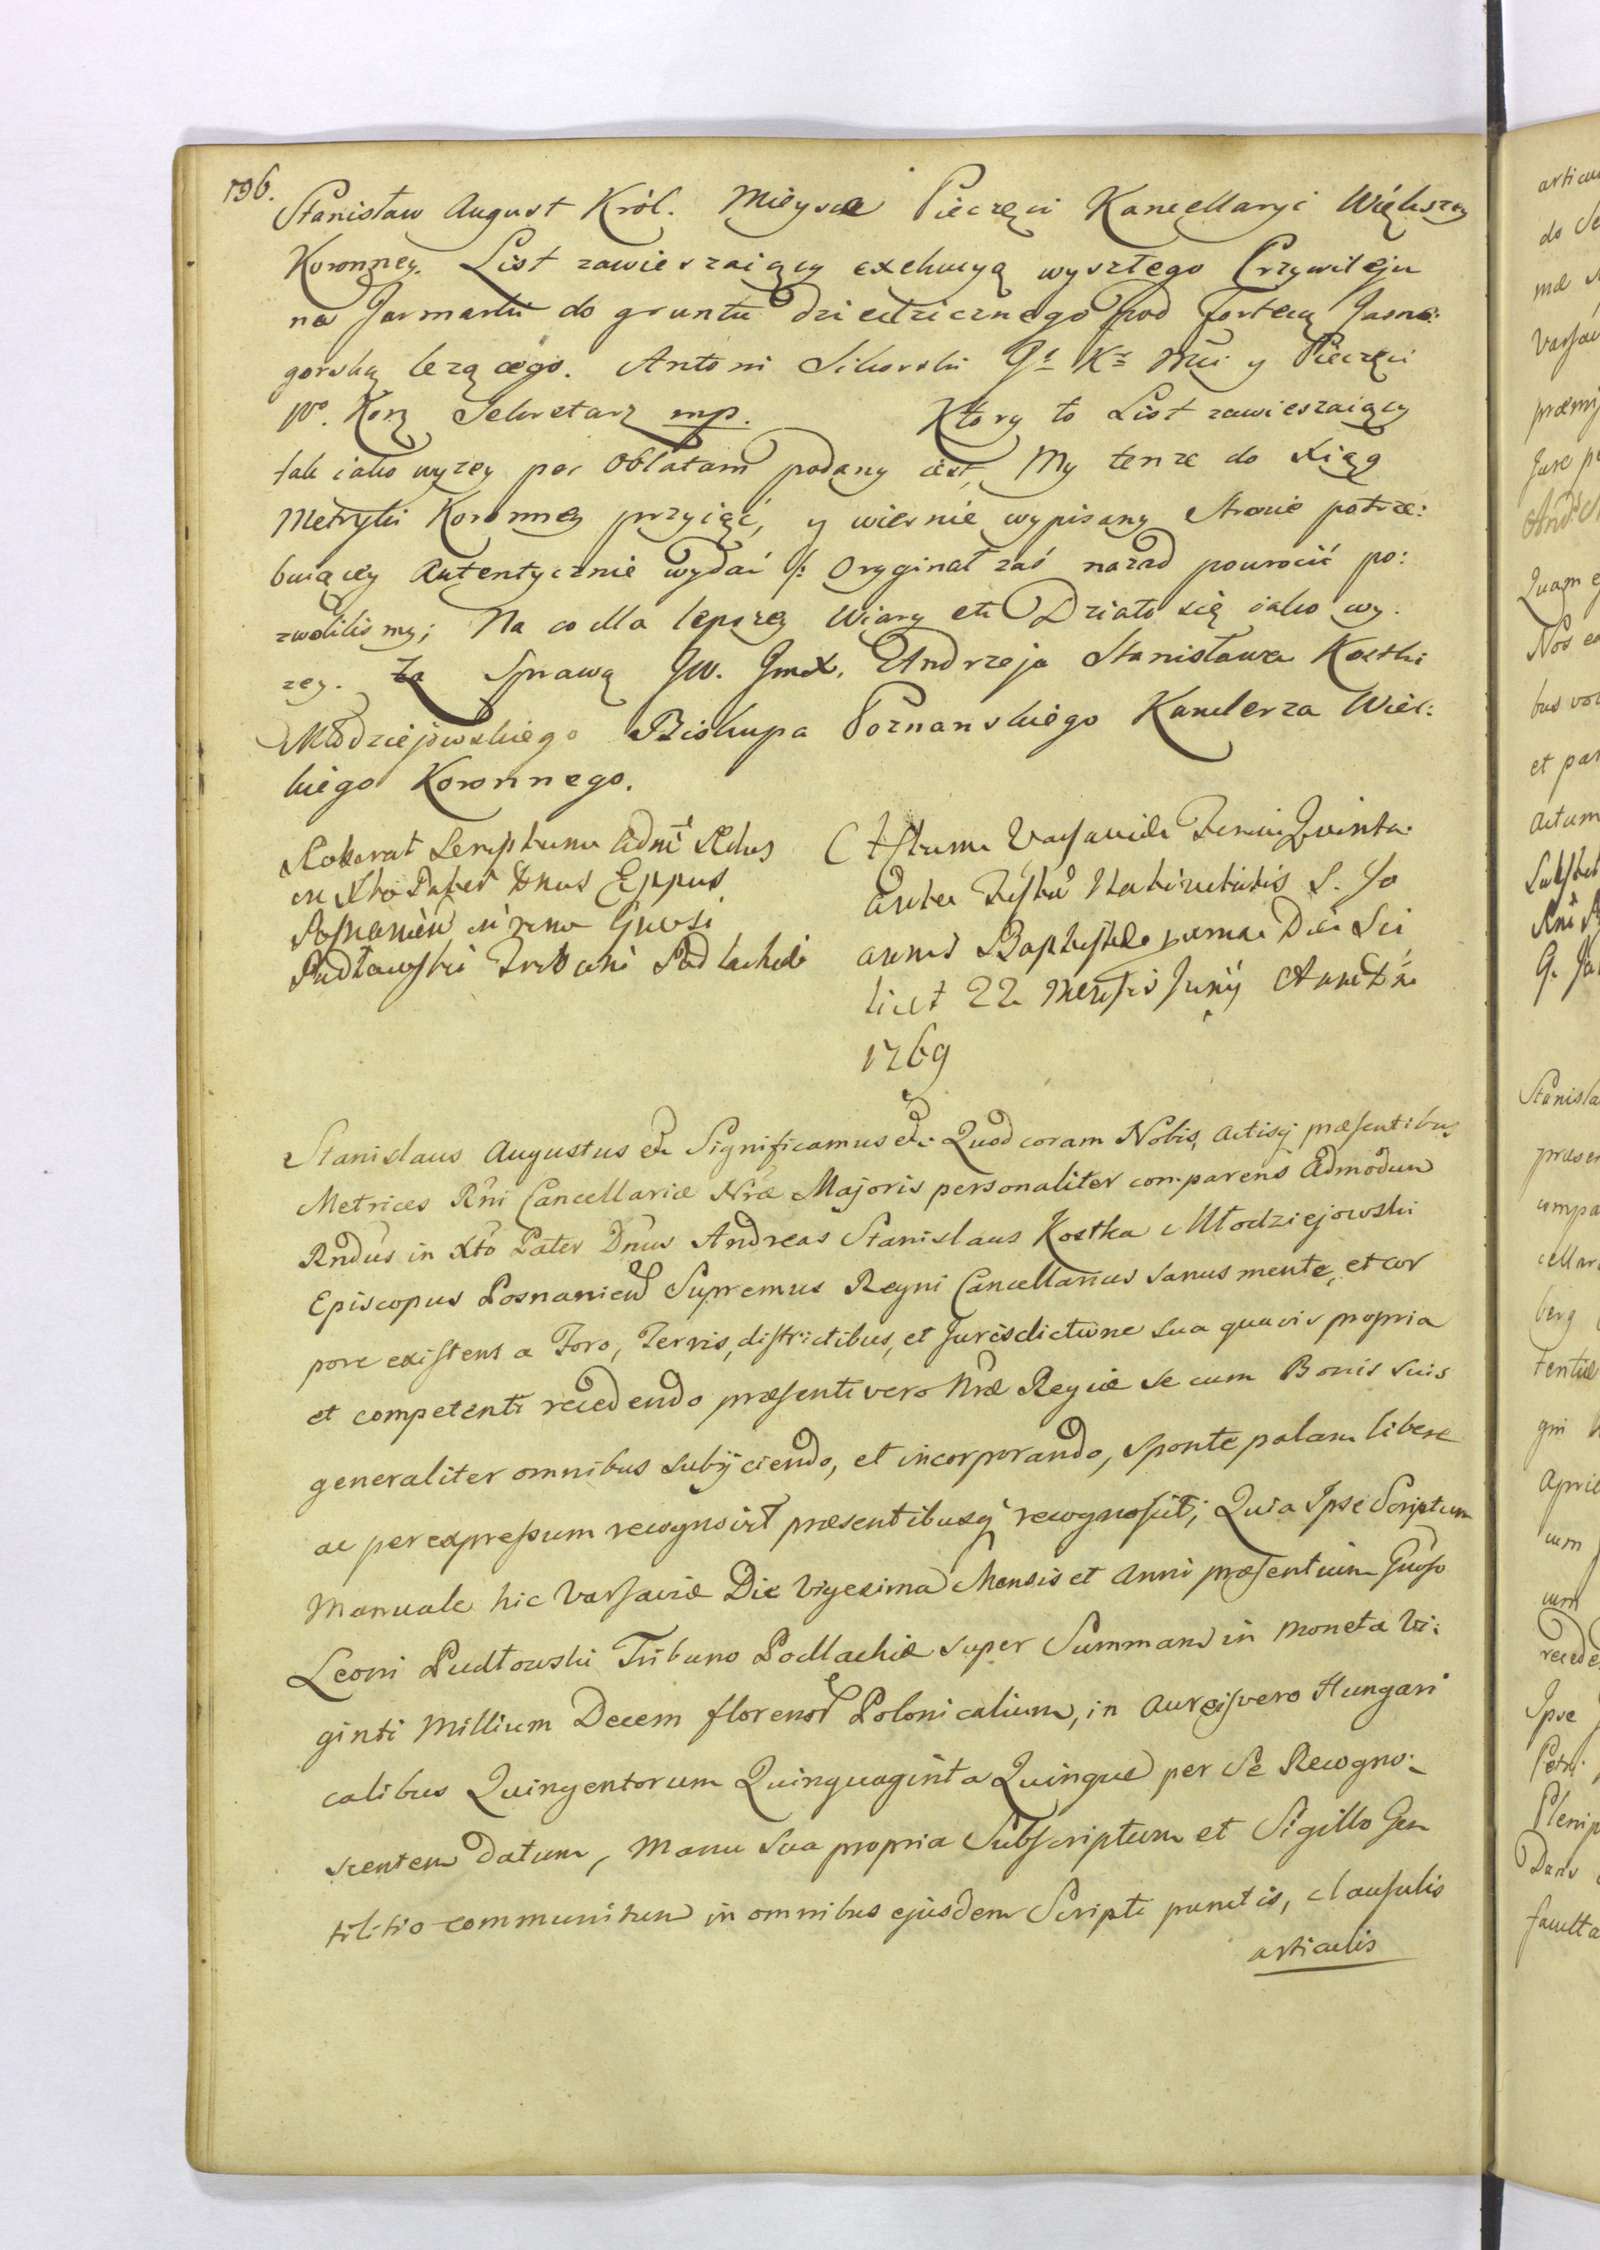 196.
Stanisław August Król. Mieysce Pieczęci Kancellaryi Większey
Koronney. List zawieszaiący exekucyą wyszłego Przywileju
na Jarmarki do gruntu dziedzicznego pod Fortecą Jasno:
gorską lezącego. Antoni Sikorski Gł Kz Mci y Pieczęci
Wo. Korz Sekretarz mp. Ktory to List zawieszaiący
tak iako wyzey per Oblatam podany iest, My tenze do Xiąg
Metryki Koronney przyiąć, y wiernie wypisany Stronie potrze:
buiącey autentycznie wydać /: Oryginał zaś nazad powrocić po:
zwolilismy; Na co dla lepszey Wiary etc Działo się iako wy.
zey. Za Sprawą JW. Jmx. Andrzeja Stanisława Kostki
Młodziejowskiego Biskupa Poznanskiego Kanclerza Wiel:
kiego Koronnego.
Roborat Scriptum Adm Rdus
in Xto Pater Dnus Eppus
Posnanien in rem Gnosi
Pudłowski Tribuni Podlachiæ
Actum Varsaviæ Feria Quinta
ante Festu Nativitatis S. Jo
annis Baptistæ proxima Die Sci
licet 22 Mensis Junij Anno Dni
1769
Stanislaus Augustus etc Significamus etc: Quod coram Nobis, actisq præsentibus
Metrices Rni Cancellariæ Nræ Majoris personaliter comparens Admodum
Rndus in Xto Pater Dnus Andreas Stanislaus Kostka Młodziejowski
Episcopus Posnanien Supremus Regni Cancellarius sanus mente, et cor
pore existens a Foro, Terris, districtibus, et Jurisdictione sua quavis propria
et competenti recedendo præsenti vero Nræ Regiæ se cum Bonis suis
generaliter omnibus subijciendo, et incorporando, sponte palam libere
ac per expressum recognovit præsentibusq recognoscit; Quia Ipse Scriptum
Manuale hic Varsaviæ Die Vigesima Mensis et Anni præsentium Gnoso
Leoni Pudłowski Tribuno Podlachiæ super Summam in moneta Vi:
ginti Millium Decem florenor Polonicalium, in aureis vero Hungari
calibus Quingentorum Quinquaginta Quinque per Se Recogno:
scentem datum, Manu sua propria Subscriptum et Sigillo Gen
tilitio communitum in omnibus ejusdem Scripti punctis, clausulis
articulis